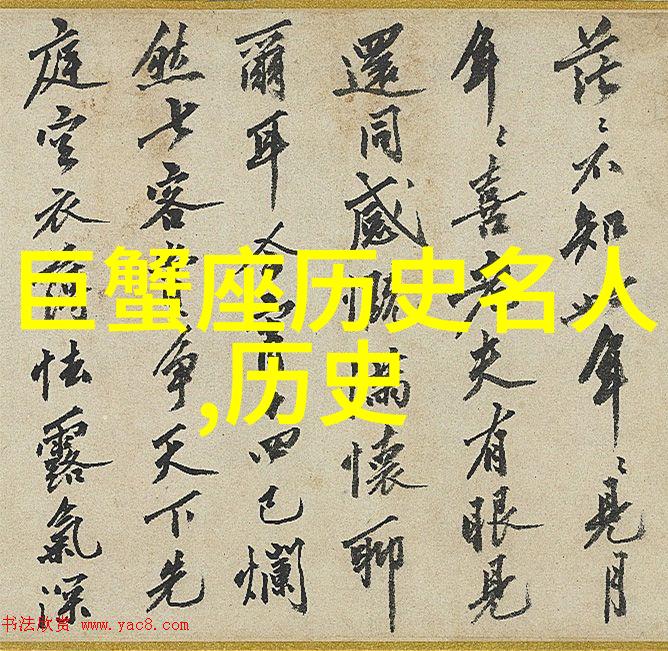 巨蟹座历史名人
,历史
茫〻不知年〻見月
年〻喜夫有眼見
還同感懷聊
爾耳四已爛
然七客爭天下先
庭空衣怯露氣深
书法欣赏 www.yac8.com